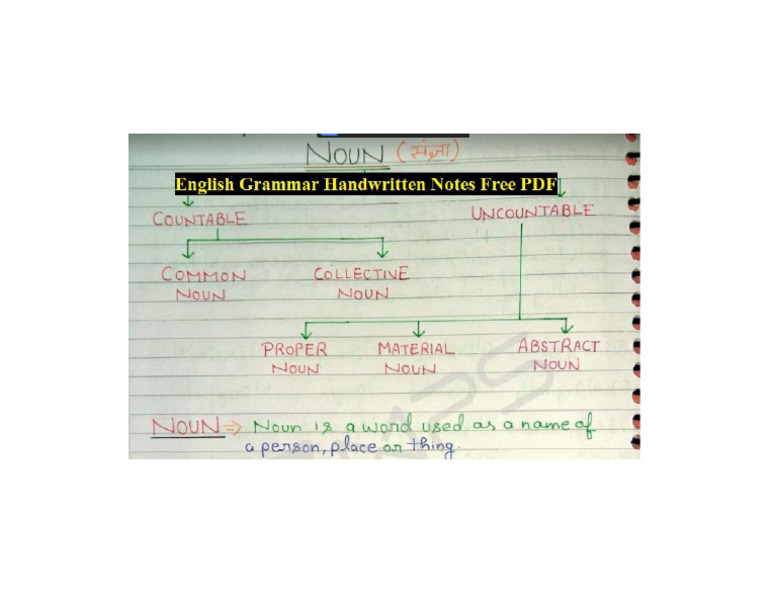 NOUN (संज्ञा)
English Grammar Handwritten Notes Free PDF
COUNTABLE UNCOUNTABLE
COMMON NOUN COLLECTIVE NOUN
PROPER NOUN MATERIAL NOUN ABSTRACT NOUN
NOUN ⇒ Noun is a word used as a name of
a person, place or thing.